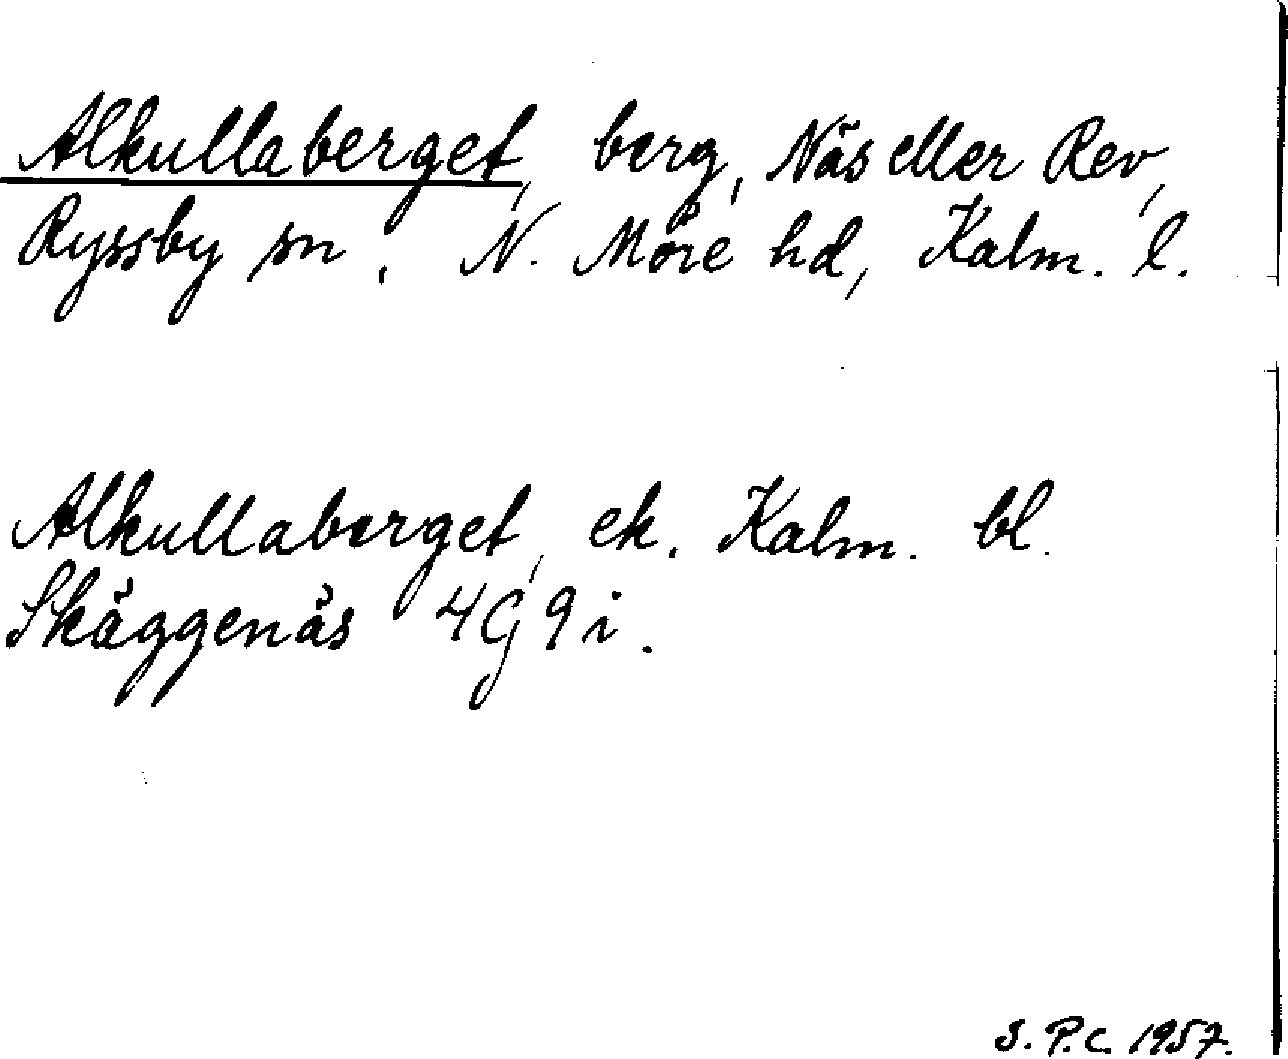 Alkullaberget, berg, Näs eller Rev,
Ryssby sn, N. Möre hd, Kalm. l.
Alkullaberget, ek. Kalm. bl.
Skäggenäs 4G9i.
S. P. C. 1957.